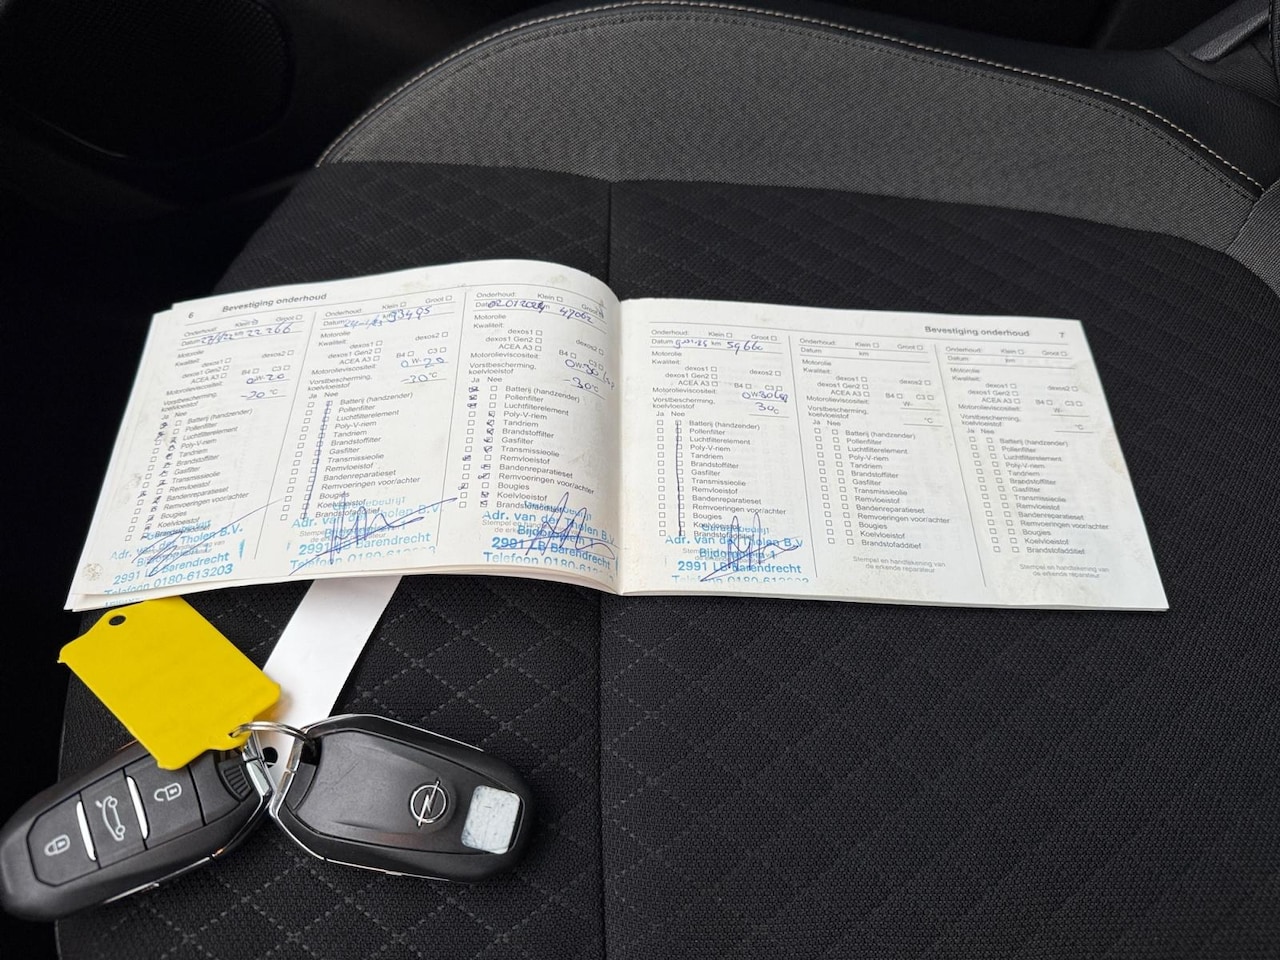 6 Bevestiging onderhoud
Onderhoud: Klein Groot
Datum km 22266
Motorolie
Kwaliteit:
dexos1 dexos2
dexos1 Gen2
ACEA A3 B4 C3
Motorolieviscositeit: 0W-20
Vorstbescherming, koelvloeistof -20 °C
Ja Nee
Batterij (handzender)
Pollenfilter
Luchtfilterelement
Poly-V-riem
Tandriem
Brandstoffilter
Gasfilter
Transmissieolie
Remvloeistof
Bandenreparatieset
Remvoeringen voor/achter
Bougies
Koelvloeistof
Adr. van der Tholen B.V.
2991 LB Barendrecht
Telefoon 0180-613203
Onderhoud: Klein Groot
Datum km 33495
Motorolie
Kwaliteit:
dexos1 dexos2
dexos1 Gen2
ACEA A3 B4 C3
Motorolieviscositeit: 0W-20
Vorstbescherming, koelvloeistof -20 °C
Ja Nee
Batterij (handzender)
Pollenfilter
Luchtfilterelement
Poly-V-riem
Tandriem
Brandstoffilter
Gasfilter
Transmissieolie
Remvloeistof
Bandenreparatieset
Remvoeringen voor/achter
Bougies
Koelvloeistof
Brandstofadditief
Adr. van der Tholen B.V.
2991 LB Barendrecht
Telefoon 0180-613203
Onderhoud: Klein Groot
Datum 02012024 km 47062
Motorolie
Kwaliteit:
dexos1 dexos2
dexos1 Gen2
ACEA A3 B4 C3
Motorolieviscositeit: 0W-30
Vorstbescherming, koelvloeistof -30 °C
Ja Nee
Batterij (handzender)
Pollenfilter
Luchtfilterelement
Poly-V-riem
Tandriem
Brandstoffilter
Gasfilter
Transmissieolie
Remvloeistof
Bandenreparatieset
Remvoeringen voor/achter
Bougies
Koelvloeistof
Brandstofadditief
Adr. van der Tholen B.V.
2991 LB Barendrecht
Telefoon 0180-613203
Bevestiging onderhoud 7
Onderhoud: Klein Groot
Datum km
Motorolie
Kwaliteit:
dexos1 dexos2
dexos1 Gen2
ACEA A3 B4 C3
Motorolieviscositeit: 0W30
Vorstbescherming, koelvloeistof 30c
Ja Nee
Batterij (handzender)
Pollenfilter
Luchtfilterelement
Poly-V-riem
Tandriem
Brandstoffilter
Gasfilter
Transmissieolie
Remvloeistof
Bandenreparatieset
Remvoeringen voor/achter
Bougies
Koelvloeistof
Brandstofadditief
Adr. van der Tholen B.V.
2991 LB Barendrecht
Telefoon 0180-613203
Onderhoud: Klein Groot
Datum km
Motorolie
Kwaliteit:
dexos1 dexos2
dexos1 Gen2
ACEA A3 B4 C3
Motorolieviscositeit: W-
Vorstbescherming, koelvloeistof °C
Ja Nee
Batterij (handzender)
Pollenfilter
Luchtfilterelement
Poly-V-riem
Tandriem
Brandstoffilter
Gasfilter
Transmissieolie
Remvloeistof
Bandenreparatieset
Remvoeringen voor/achter
Bougies
Koelvloeistof
Brandstofadditief
Stempel en handtekening van
de erkende reparateur
Onderhoud: Klein Groot
Datum km
Motorolie
Kwaliteit:
dexos1 dexos2
dexos1 Gen2
ACEA A3 B4 C3
Motorolieviscositeit: W-
Vorstbescherming, koelvloeistof °C
Ja Nee
Batterij (handzender)
Pollenfilter
Luchtfilterelement
Poly-V-riem
Tandriem
Brandstoffilter
Gasfilter
Transmissieolie
Remvloeistof
Bandenreparatieset
Remvoeringen voor/achter
Bougies
Koelvloeistof
Brandstofadditief
Stempel en handtekening van
de erkende reparateur